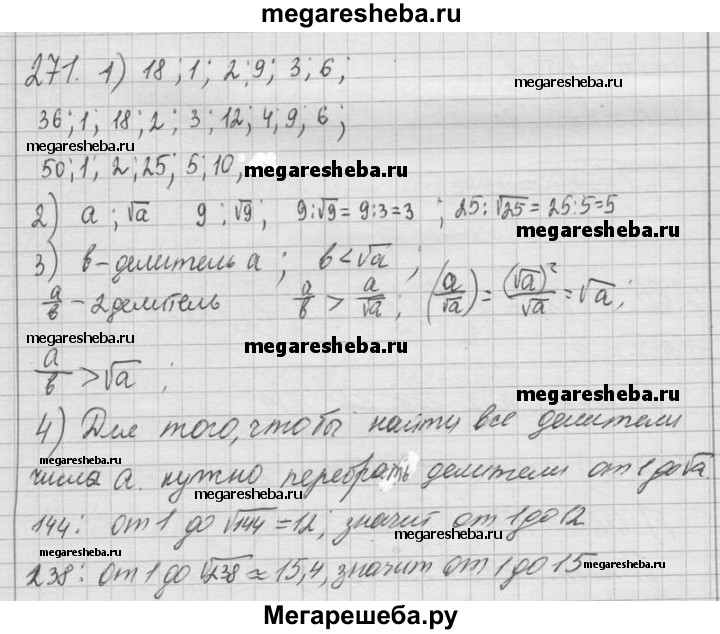 megaresheba.ru
271. 1) 18; 1; 2; 9; 3; 6;
megaresheba.ru
36; 1; 18; 2; 3; 12; 4; 9; 6;
megaresheba.ru
50; 1; 2; 25; 5; 10;
megaresheba.ru
2) a; √a 9; √9; 9:√9 = 9:3=3; 25:√25 = 25:5=5
megaresheba.ru
3) в-делитель a; в<√a;
a/в - 2 делитель a/в > a/√a; (a/√a) = (√a)²/√a = √a;
megaresheba.ru
megaresheba.ru
a/в > √a;
megaresheba.ru
4) Для того, чтобы найти все делители
megaresheba.ru
числа a. нужно перебрать делители от 1 до √a.
megaresheba.ru
144: от 1 до √144 = 12; значит от 1 до 12
megaresheba.ru
megaresheba.ru
238: от 1 до √238 ≈ 15,4, значит от 1 до 15
megaresheba.ru
megaresheba.ru
Мегарешеба.ру